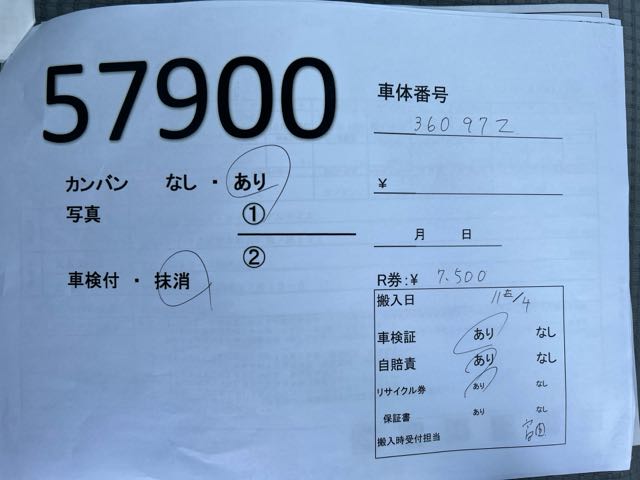 57900
車体番号
360972
カンバン なし ・ あり
¥
写真 ①
②
月 日
車検付 ・ 抹消
R券:¥ 7.500
搬入日
車検証 あり なし
自賠責 あり なし
リサイクル券 あり なし
保証書 あり なし
搬入時受付担当